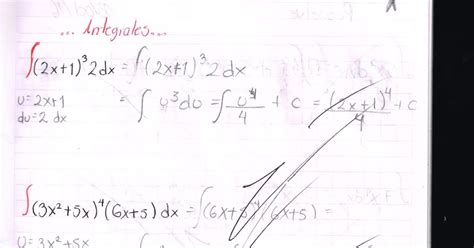 ... Integrales...
∫(2x+1)³2dx = ∫(2x+1)³2dx
u=2x+1 = ∫u³du = ∫u⁴/4 + c = (2x+1)⁴/4 + c
du=2 dx
∫(3x²+5x)⁴(6x+5)dx = ∫(6x+5)⁴(6x+5) =
u=3x²+5x